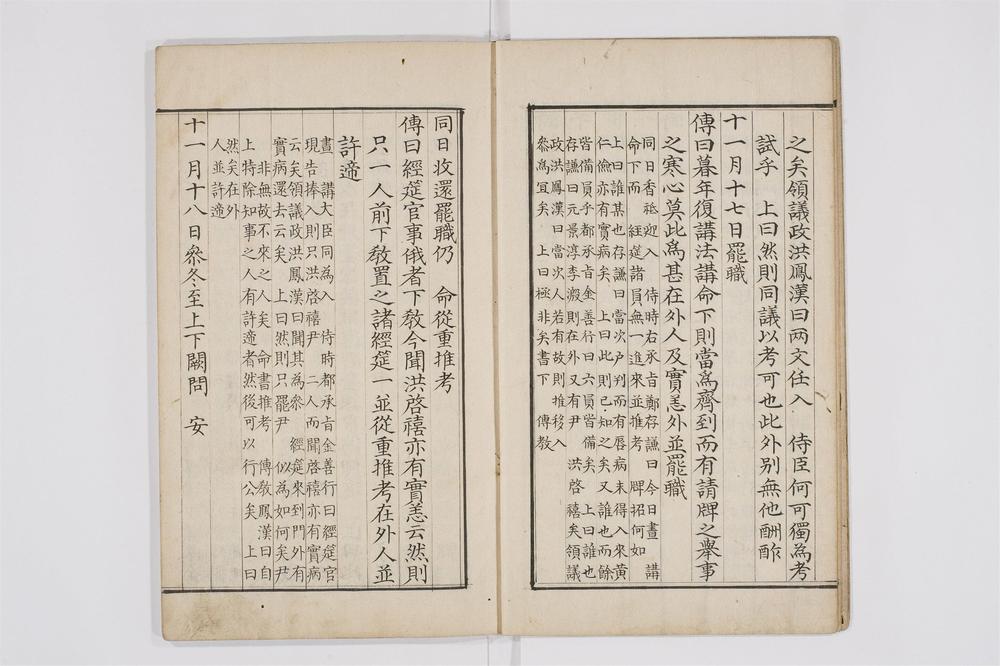 之矣領議政洪鳳漢曰两文任入　侍臣何可獨為考
試乎　上曰然則同議以考可也此外别無他酬酢
十一月十七日罷職
傳曰暮年復講法講命下則當爲齊到而有請牌之擧事
之寒心莫此爲甚在外人及實恙外並罷職
同日香祗迎入　侍時右承旨鄭存謙曰今日晝　講
命下而　經筵諸員無一進來並推考　牌招何如
上曰誰某也存謙曰當次户判而有唇病未得入來黄
仁儉亦有實病矣　上曰此則已知之矣又誰也而餘
皆備員乎都承旨金善行曰六員皆備矣　上曰誰也
存謙曰元景淳李溵則在外又有尹　洪啓禧矣領議
政洪鳳漢曰當次人若有故則推移入
參爲宜矣　上曰極非矣書下　傳教
同日收還罷職仍　命從重推考
傳曰經筵官事俄者下敎今聞洪啓禧亦有實恙云然則
只一人前下敎置之諸經筵一並從重推考在外人並
許遆
晝　講大臣同為入　侍時都承旨金善行曰經筵官
現告捧入則只洪啓禧尹　二人而聞啓禧亦有實病
云矣領議政洪鳳漢曰聞其為參　經筵來到門外有
實病還去云矣　上曰然則只罷尹　似為如何矣尹
非無故不來之人矣　命書推考　傳教鳳漢曰自
上特除知事之人有許遆者然後可以行公矣　上曰
然矣在外
人並許遆
十一月十八日參冬至上下闕問　安